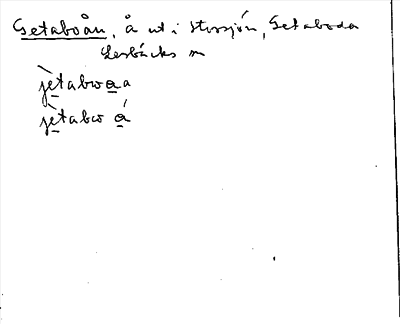 Getaboån, å ut i Storsjön, Getaboda
Lesbäcks m
jètabwaa
jètabw á